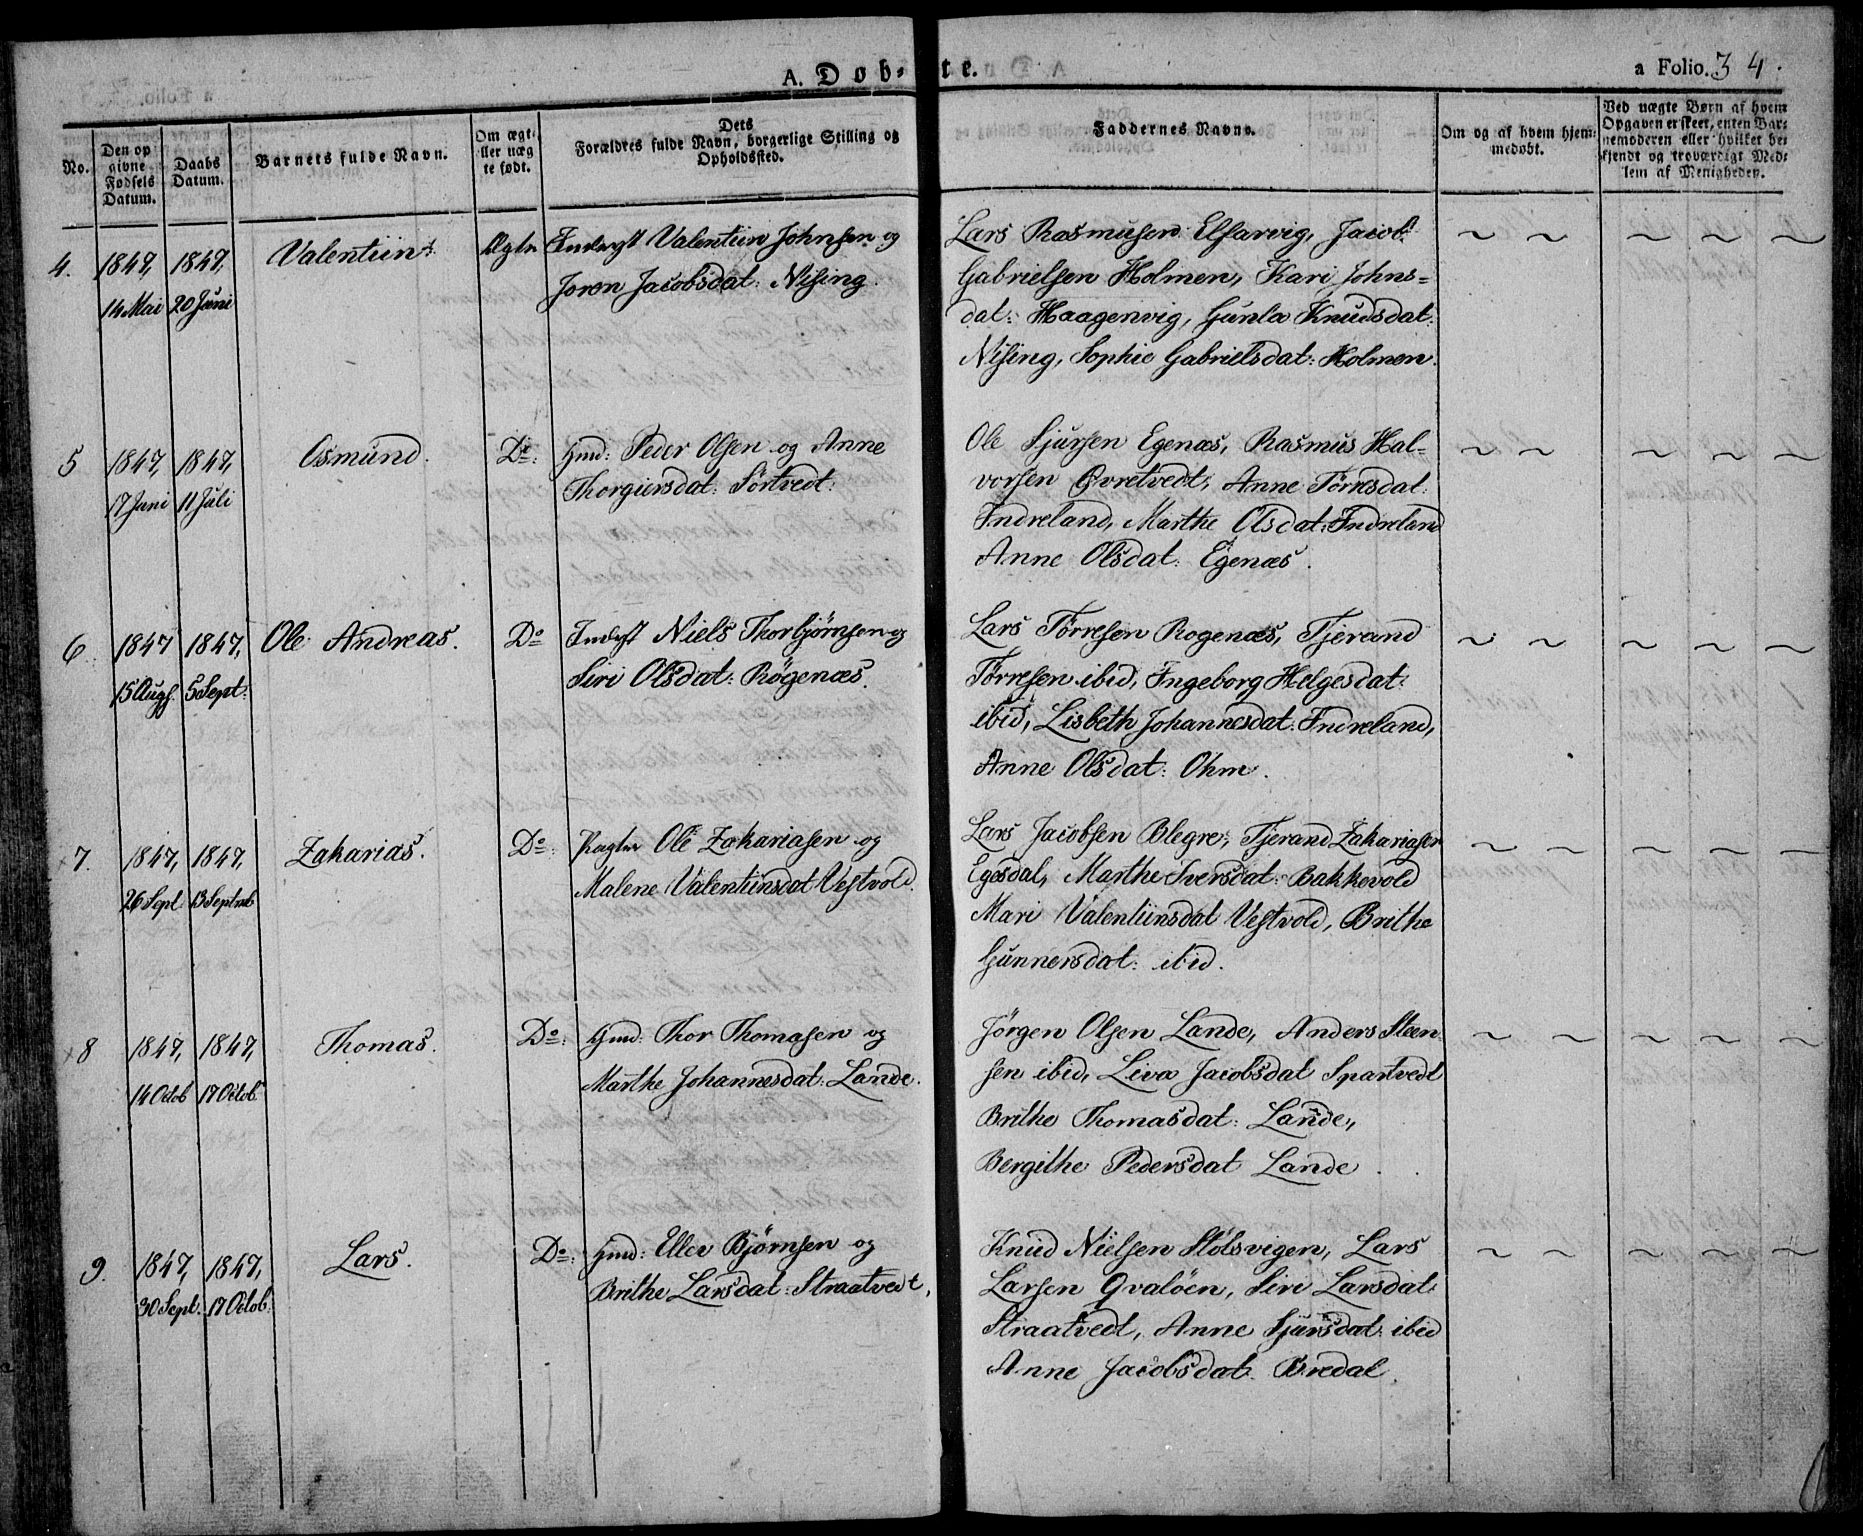 A. Døb-
te.
a Folio. 34.
No.
Den op
givne
Fødsels
Datum.
Daabs
Datum.
Barnets fulde Navn.
Om ægt-
ller uæg
te født.
Dets
Forældres fulde Navn, borgerlige Stilling og
Opholdssted.
Faddernes Navne.
Om og af hvem hjem-
medøbt.
Ved uægte Børn af hvem
Opgaven er skeet, enten Bar-
nemoderen eller hvilket be-
kjendt og troværdigt Med-
lem af Menigheden.
4. 1847, 1847, Valentiin. Ægte Inderst Valentiin Johnsen og
14 Mai 20 Juni Joren Jacobsdat: Nising.
Lars Rasmusen Elfarvig, Jacob
Gabrielsen Holmen, Kari Johns-
dat: Haagenvig, Gunla Knudsdat:
Nising, Sophie Gabrielsdat: Holmen.
5 1847, 1847, Osmund. Do: Gmd: Peder Olsen og Anne
17 Juni 11 Juli Thorgiersdat: Sørtvedt.
Ole Sjursen Egenæs, Rasmus Hal-
vorsen Øvretvedt, Anne Tørresdat:
Indreland, Marthe Olsdat: Indreland
Anne Olsdat: Egenæs.
6. 1847 1847, Ole Andreas. Do Inderst Niels Thorbjørnsen og
15 Augs. 5 Sept: Siri Olsdat: Røgenæs.
Lars Tørresen Rogenæs, Tjerand
Tørresen ibid, Ingeborg Helgesdat:
ibid, Lisbeth Johannesdat: Indreland,
Anne Olsdat: Ohm.
7. 1847, 1847, Zakarias. Do: Ole Zakariasen og
26 Sept: 13 Septmb Malene Valentiinsdat Vestvold.
Lars Jacobsen Blegre, Tjerand Zakariasen
Egesdal, Marthe Iversdat: Bakkevold
Mari Valentiinsdat Vestvold, Brithe
Gunnersdat: ibid.
8 1847, 1847, Thomas. Do: Gmd: Thor Thomasen og
14 Octob 17 Octob. Marthe Johannesdat: Lande.
Jørgen Olsen Lande, Anders Steen
sen ibid, Liva Jacobsdat Spartvedt
Brithe Thomasdat: Lande,
Bergithe Pedersdat Lande.
9. 1847, 1847, Lars. Do: Gmd: Elley Bjørnsen og
30 Sept. 17 Octob: Brithe Larsdat: Straatvedt,
Knud Nielsen Stølsvigen, Lars
Larsen Qvaløen, Siri Larsdat:
Straatvedt, Anne Sjursdat. ibid
Anne Jacobsdat. Bredal.